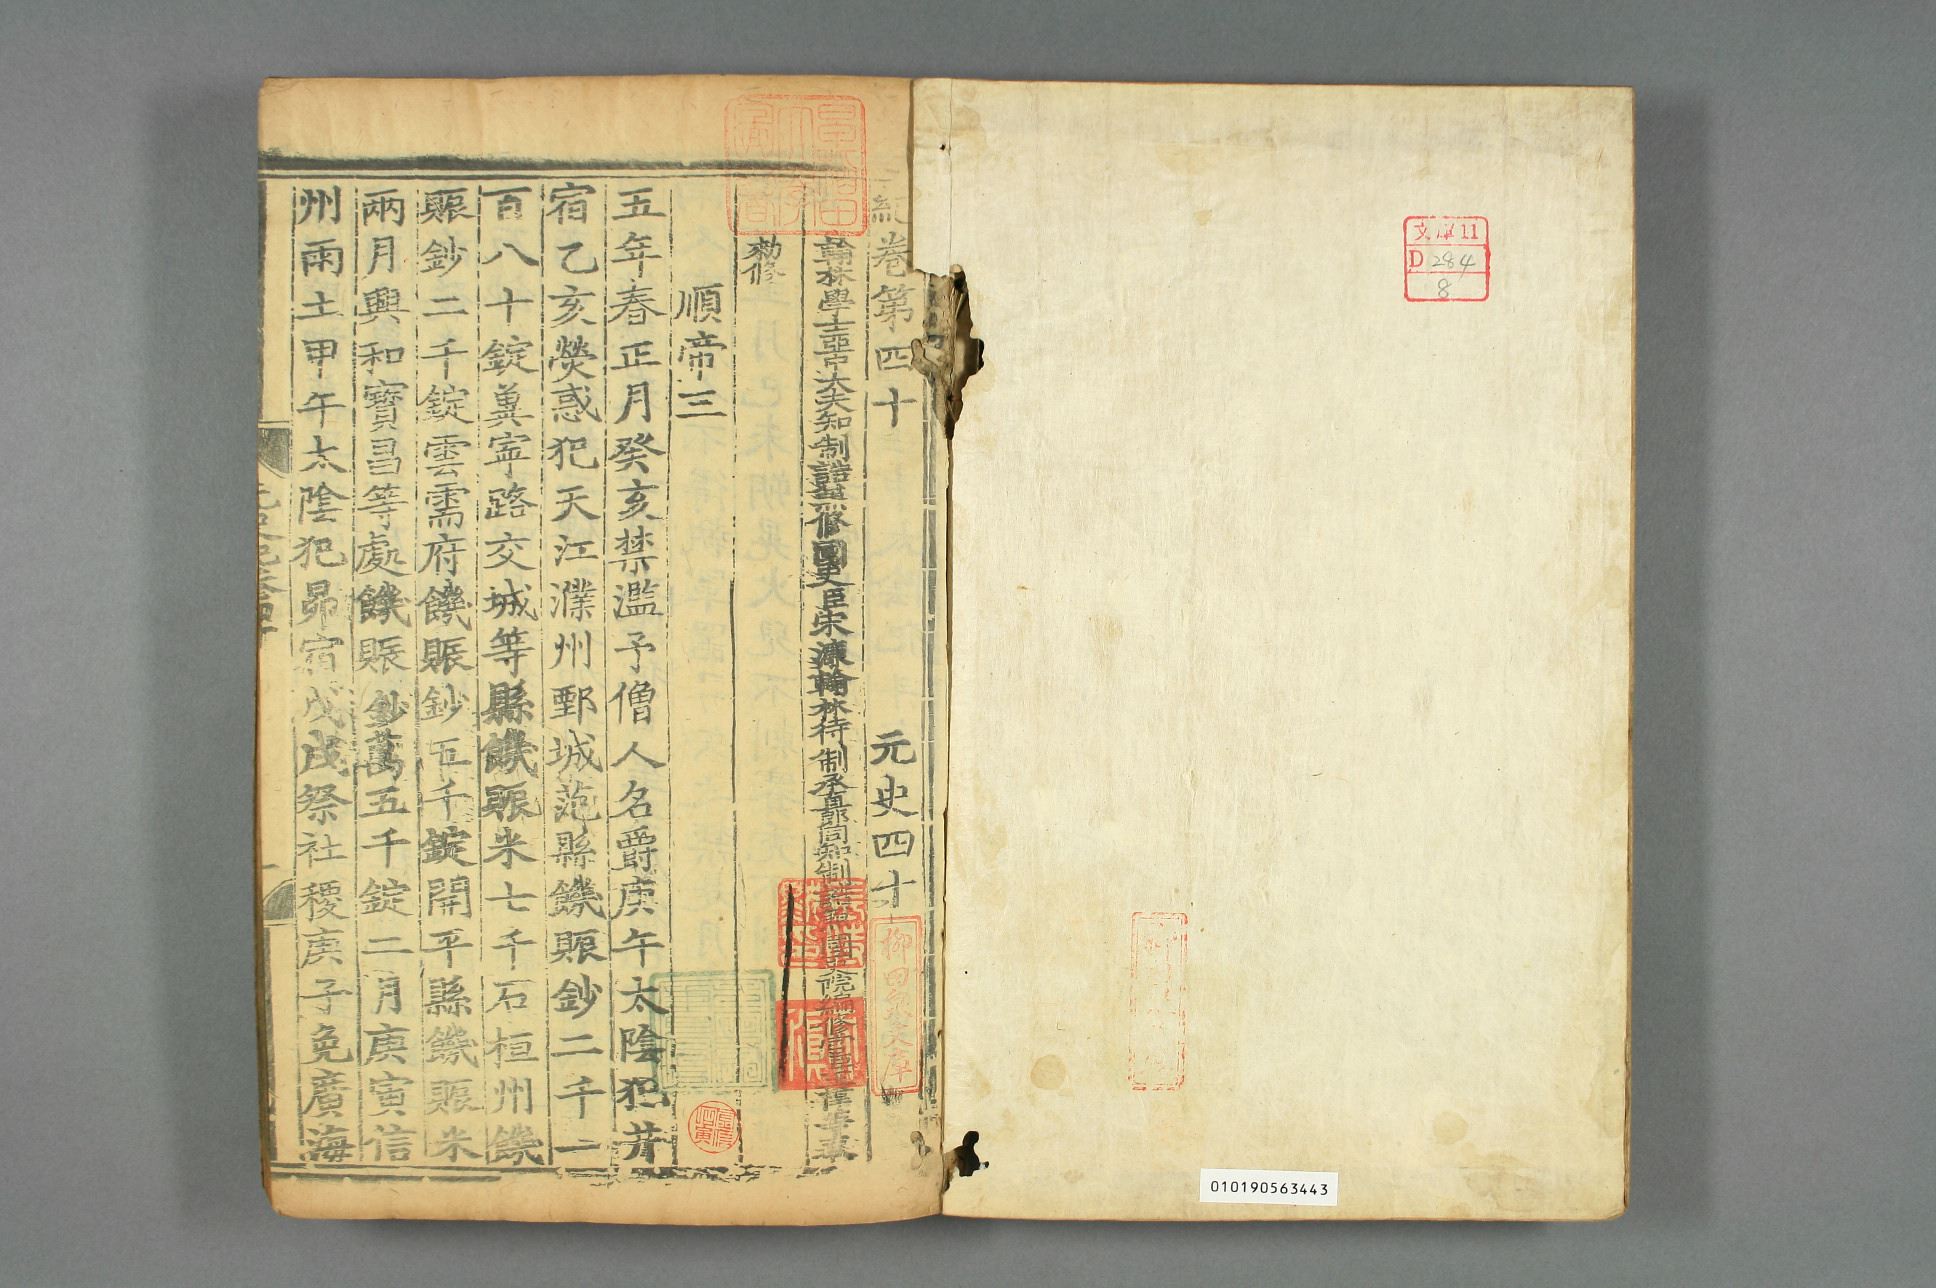 文庫11
D 284
8
010190563443
紀卷第四十 元史四十
翰林學士亞中大夫知制誥兼修國史臣宋濂翰林待制承直郎同知制誥兼國史院編修官臣王禕等奉
勑修
順帝三
五年春正月癸亥禁濫予僧人名爵庚午太陰犯井
宿乙亥熒惑犯天江濮州鄄城范縣饑賑鈔二千一
百八十錠冀寧路交城等縣饑賑米七千石桓州饑
賑鈔二千錠雲需府饑賑鈔五千錠開平縣饑賑米
兩月興和寶昌等處饑賑鈔萬五千錠二月庚寅信
州雨土甲午太陰犯昴宿戊戌祭社稷庚子免廣海
柳田泉文庫